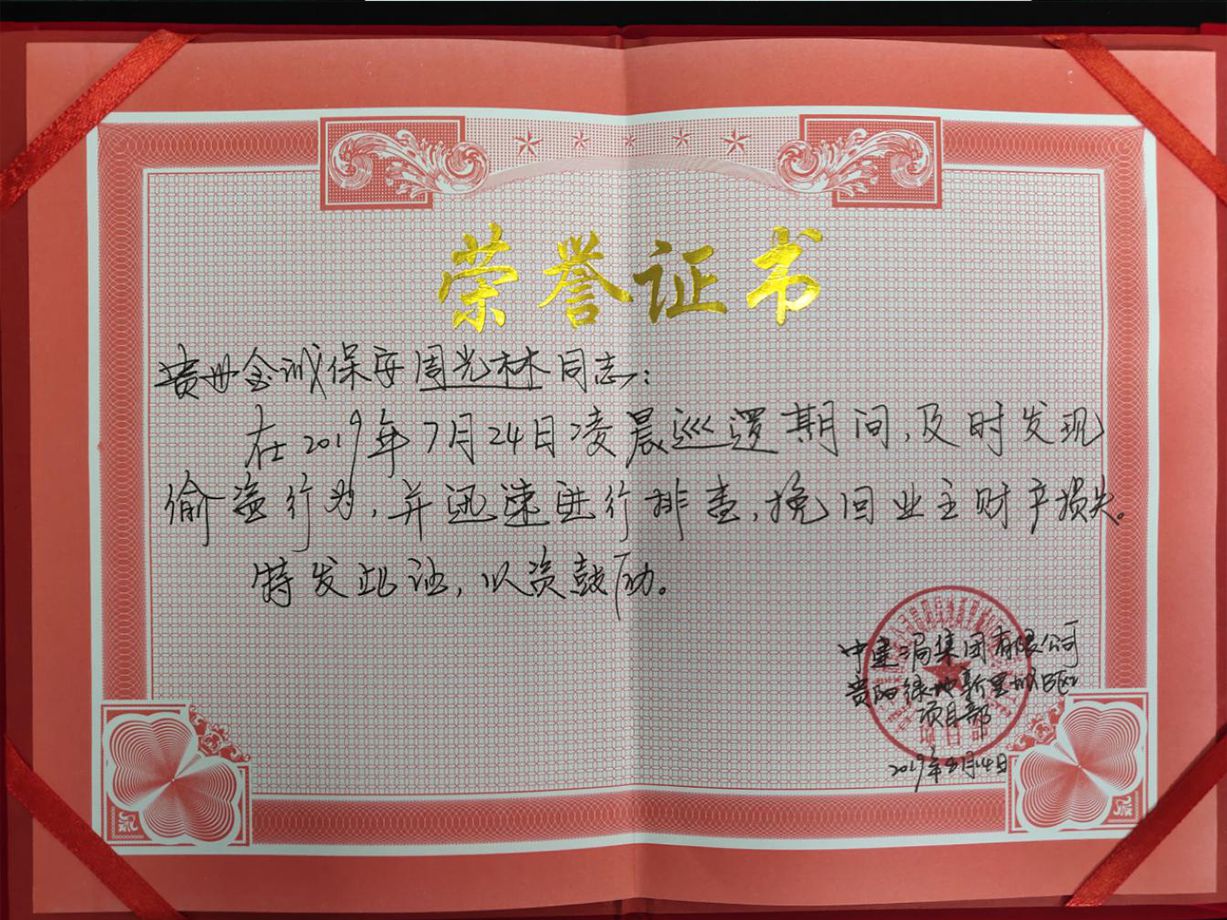 荣誉证书
贵州金诚保安周光林同志:
在2019年7月24日凌晨巡逻期间,及时发现
偷盗行为,并迅速进行排查,挽回业主财产损失。
特发此证,以资鼓励。
中建二局集团有限公司
贵阳绿地新里城B区
项目部
2019年8月14日